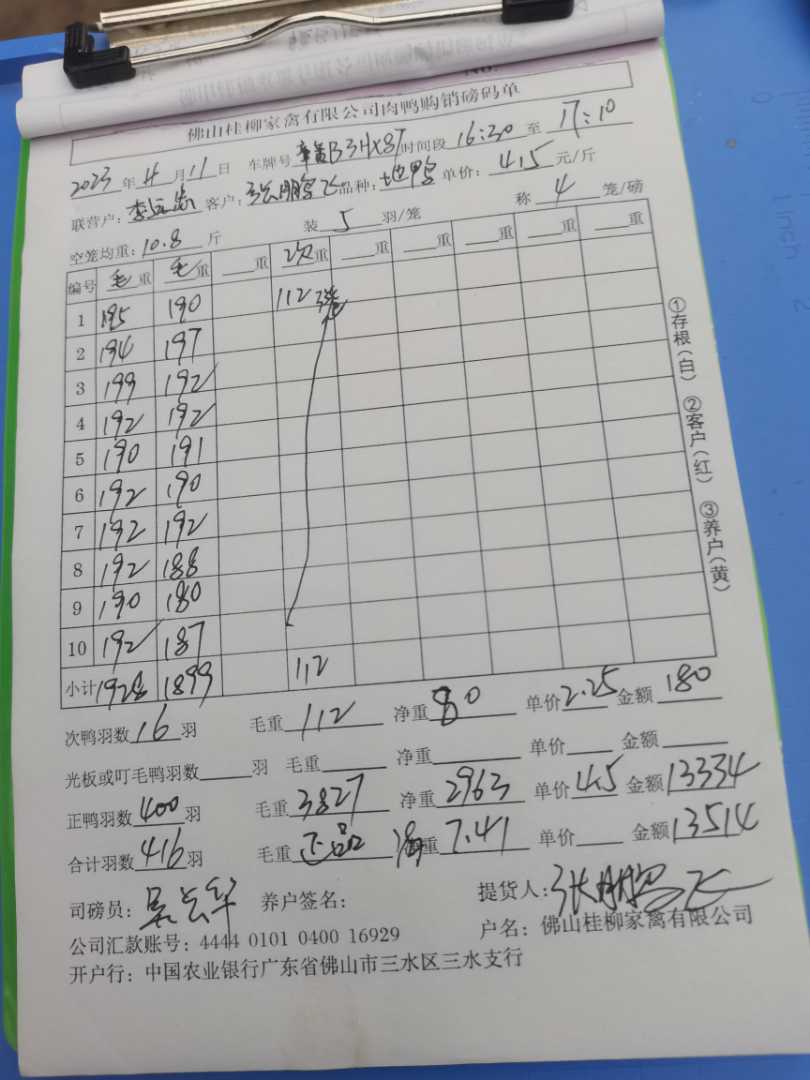 佛山桂柳家禽有限公司肉鸭购销磅码单
2023年4月11日 车牌号 B34X87 时间段16:30至17:10
联营户: 客户:张鹏飞 品种: 单价:4.5元/斤
空笼均重:10.8斤 装5羽/笼 称4笼/磅
编号 毛重 毛重 重 次重 重 重 重 重 重
1 195 190 112
2 194 197
3 199 192
4 192 192
5 190 191
6 192 190
7 192 192
8 192 188
9 190 180
10 192 187
小计 1928 1899 112
次鸭羽数16羽 毛重112 净重80 单价2.25 金额180
光板或叮毛鸭羽数 羽 毛重 净重 单价 金额
正鸭羽数400羽 毛重3827 净重2963 单价4.5 金额13334
合计羽数416羽 毛重正品 重7.41 单价 金额13514
司磅员: 养户签名: 提货人:张鹏飞
公司汇款账号:4444 0101 0400 16929 户名:佛山桂柳家禽有限公司
开户行:中国农业银行广东省佛山市三水区三水支行
①存根(白) ②客户(红) ③养户(黄)
1 inch 2